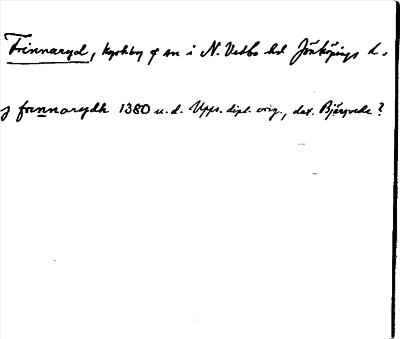 Frinnaryd, kyrkby o sn i N. Vedbo hd Jönköpings l.
j frennarydh 1380 u. d. Upps. dipl. orig., dat. Bjärgvede?